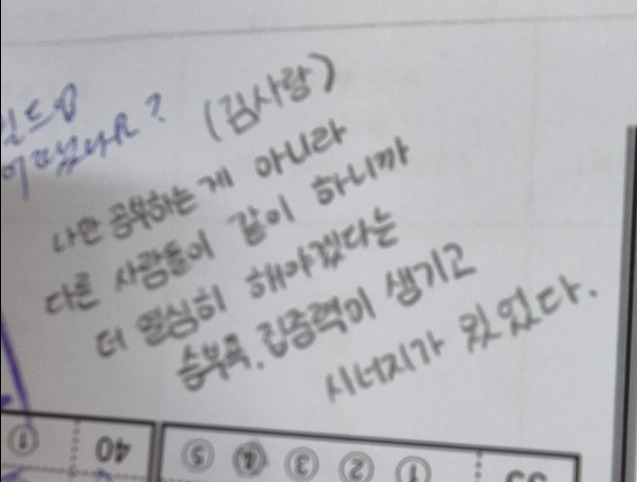 (김사랑)
나만 공부하는 게 아니라
다른 사람들이 같이 하니까
더 열심히 해야겠다는
승부욕, 집중력이 생기고
시너지가 있었다.
① 40 ⑤ ④ ③ ② ①